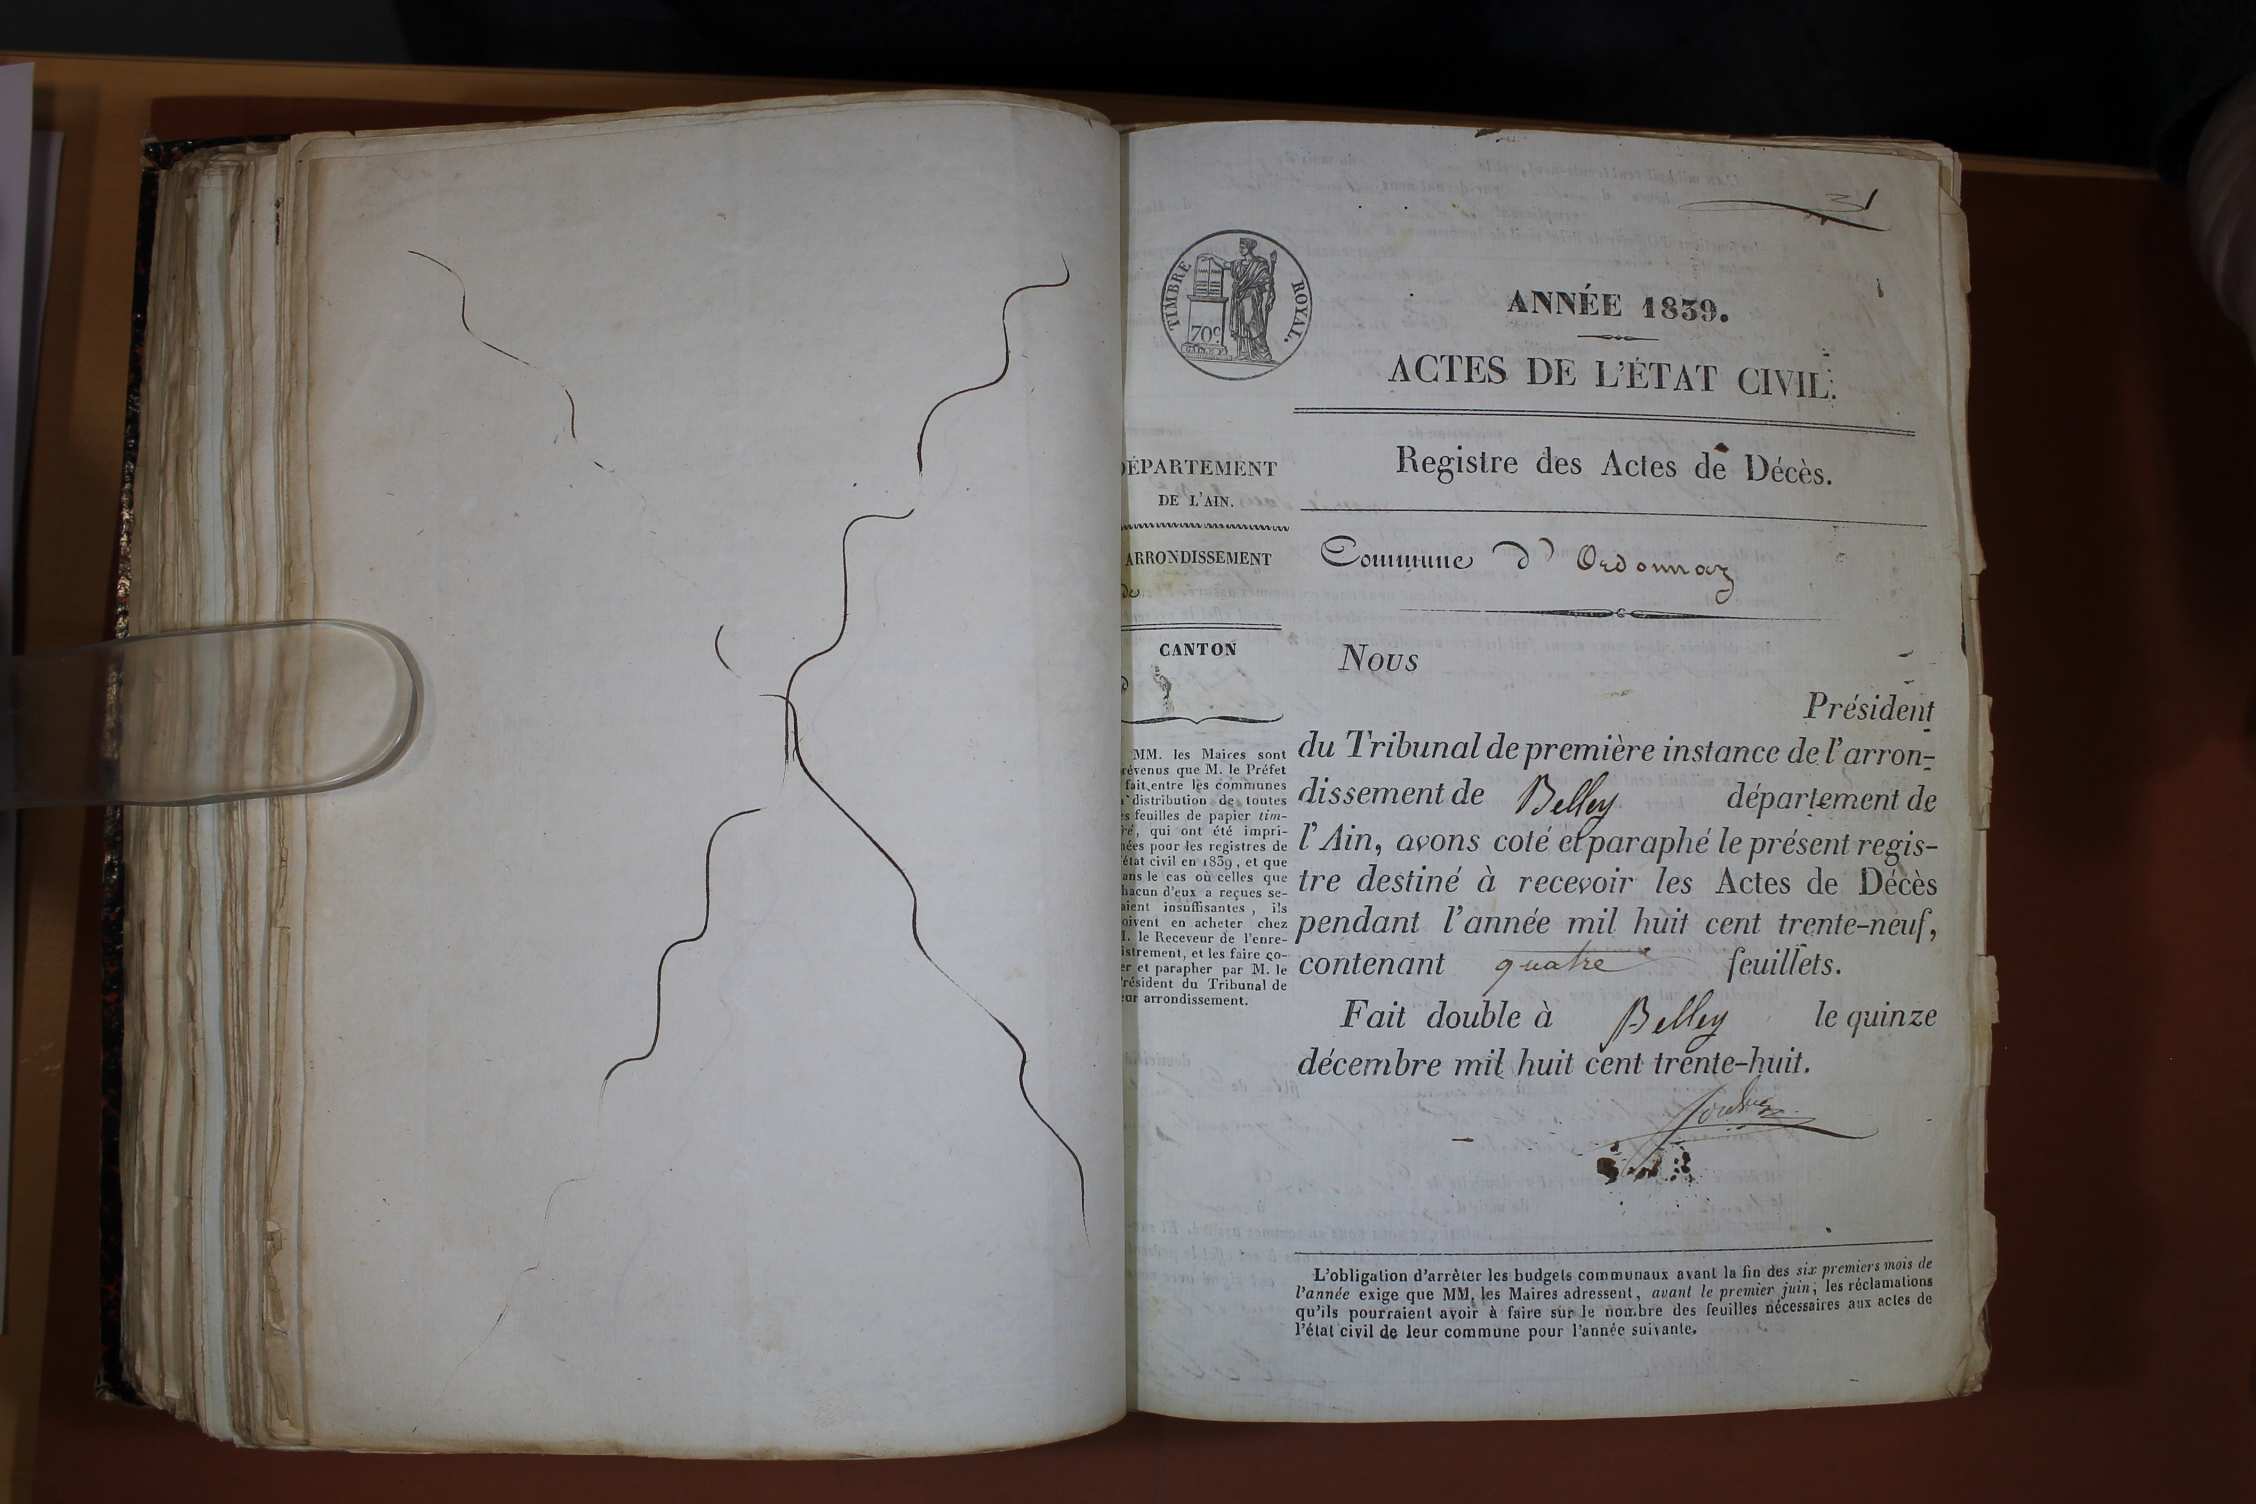 1
TIMBRE ROYAL.
70c.
ANNÉE 1839.
ACTES DE L'ÉTAT CIVIL.
Registre des Actes de Décès.
Commune d' Ordonnaz
DÉPARTEMENT
DE L'AIN.
ARRONDISSEMENT
de
CANTON
d
MM. les Maires sont
révenus que M. le Préfet
fait entre les communes
a distribution de toutes
es feuilles de papier tim-
ré, qui ont été impri-
ées pour les registres de
'état civil en 1839, et que
ans le cas où celles que
hacun d'eux a reçues se-
aient insuffisantes, ils
oivent en acheter chez
M. le Receveur de l'enre-
istrement, et les faire co-
er et parapher par M. le
résident du Tribunal de
eur arrondissement.
Nous
Président
du Tribunal de première instance de l'arron-
dissement de Belley département de
l'Ain, avons coté et paraphé le présent regis-
tre destiné à recevoir les Actes de Décès
pendant l'année mil huit cent trente-neuf,
contenant quatre feuillets.
Fait double à Belley le quinze
décembre mil huit cent trente-huit.
L'obligation d'arrêter les budgets communaux avant la fin des six premiers mois de
l'année exige que MM. les Maires adressent, avant le premier juin, les réclamations
qu'ils pourraient avoir à faire sur le nombre des feuilles nécessaires aux actes de
l'état civil de leur commune pour l'année suivante.